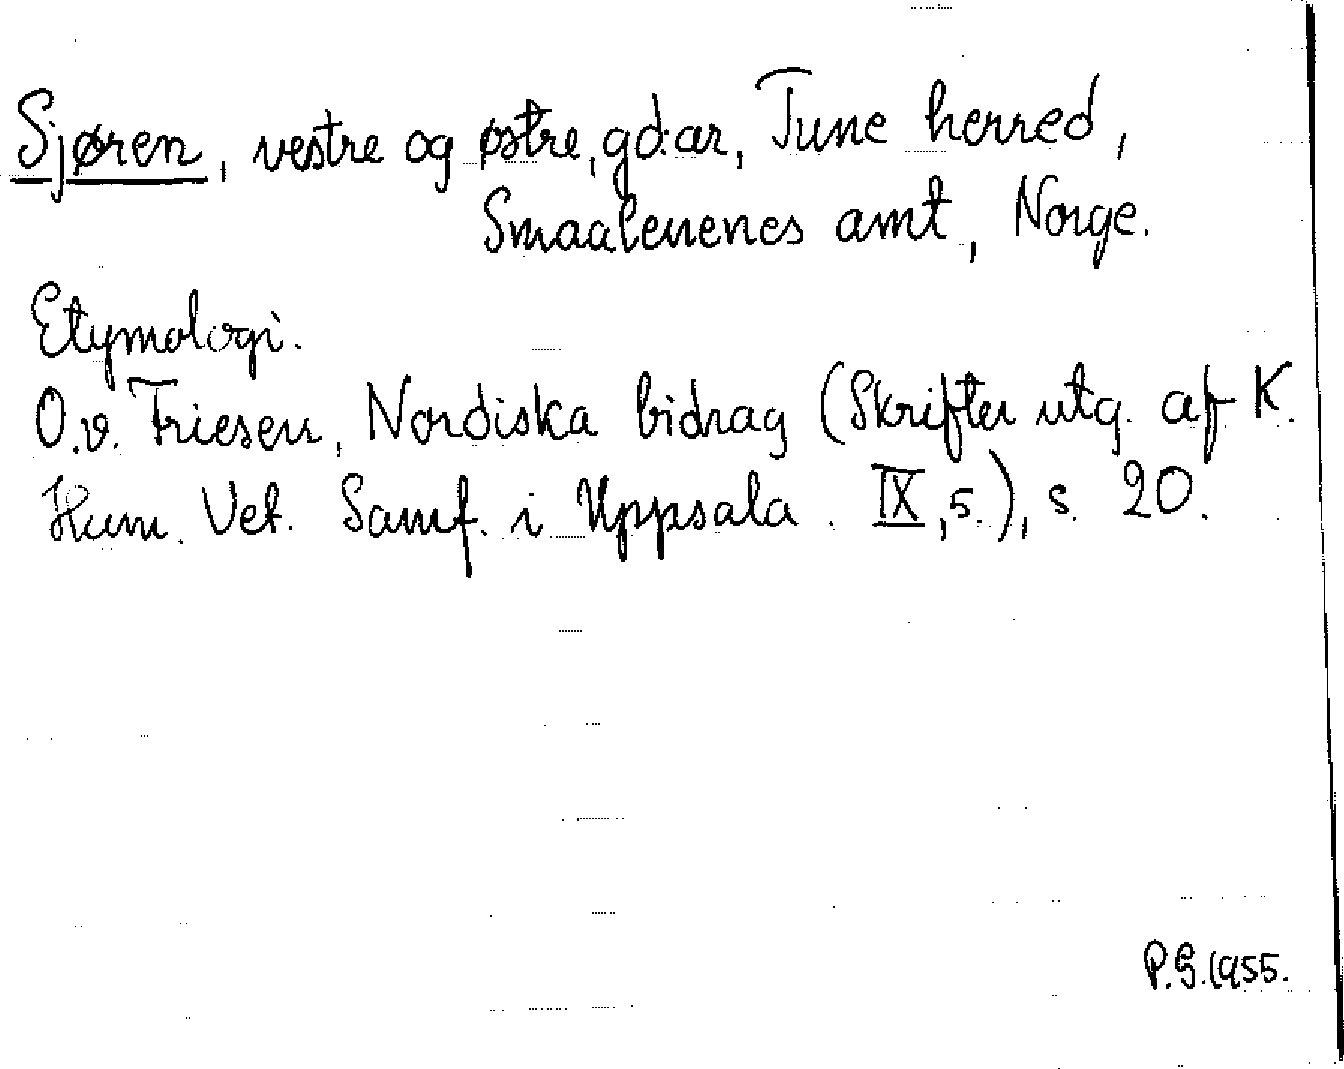 Sjøren, vestre og østre, gd:ar, Tune herred,
Smaalenenes amt, Norge.
Etymologi.
O.v. Friesen, Nordiska bidrag (Skrifter utg. af K.
Hum. Vet. Samf. i Uppsala. IX,5.), s. 20.
P.G.1955.